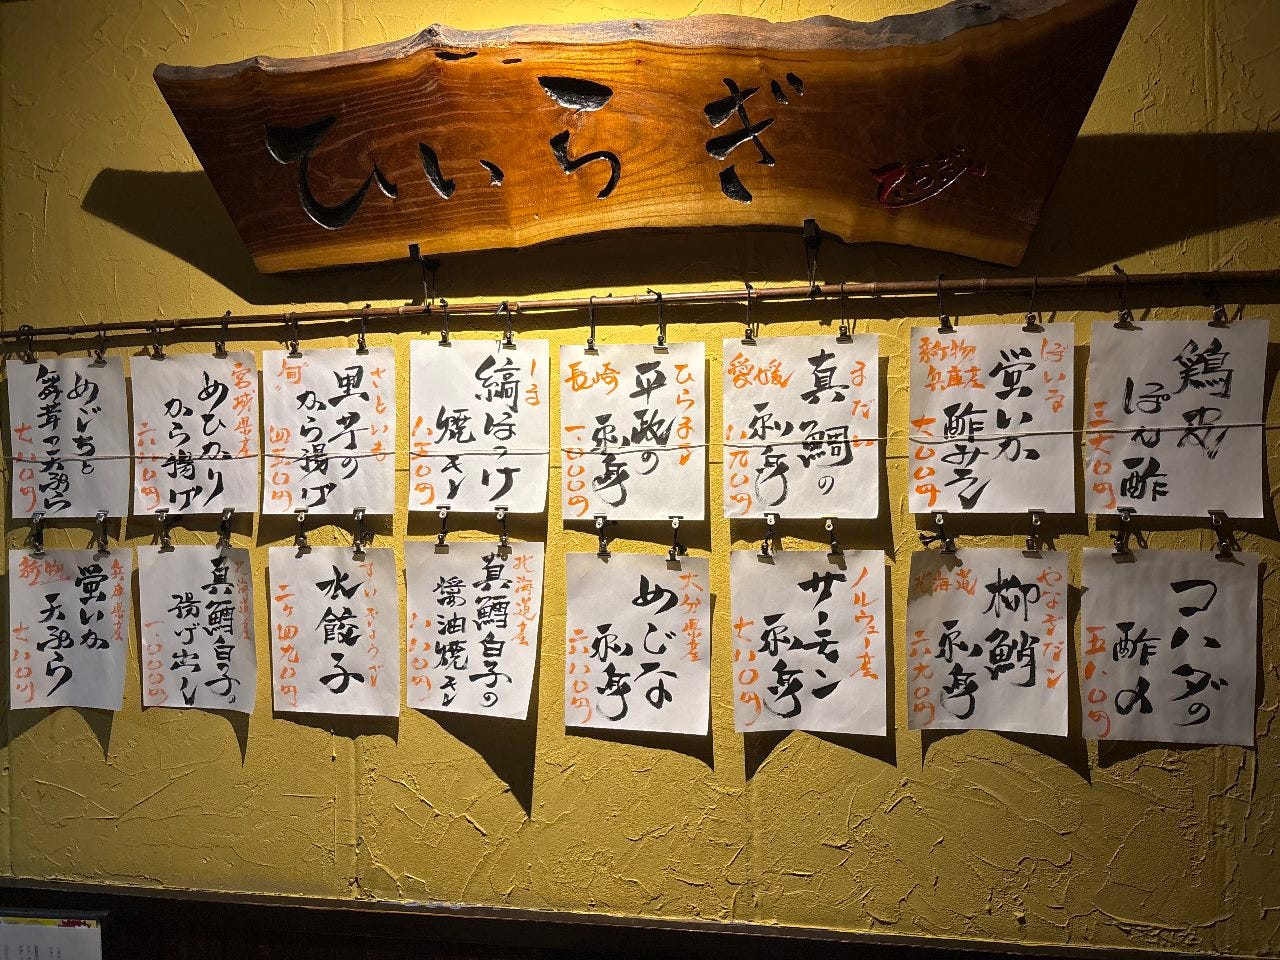 ひいらぎ
ひいらぎ
鶏皮
ぽん酢
三六〇円
ぼいる
蛍いか
酢みそ
新物
兵庫産
七〇〇円
まだい
真鯛の
刺身
愛媛
八九〇円
ひらまさ
平政の
刺身
長崎
一、〇〇〇円
しま
縞ほっけ
焼き
さといも
里芋の
から揚げ
旬
四五〇円
宮城県産
めひかり
から揚げ
六八〇円
めじちと
舞茸の天ぷら
七八〇円
コハダの
酢〆
五八〇円
やなぎだこ
柳鮹
刺身
北海道
六九〇円
ノルウェー産
サーモン
刺身
七八〇円
大分県産
めじな
刺身
六八〇円
北海道産
真鱈白子の
醤油焼き
八八〇円
すいぎょうざ
水餃子
二ヶ四九〇円
北海道産
真鱈白子の
揚げ出し
一、〇〇〇円
兵庫県産
蛍いか
天ぷら
新物
七八〇円